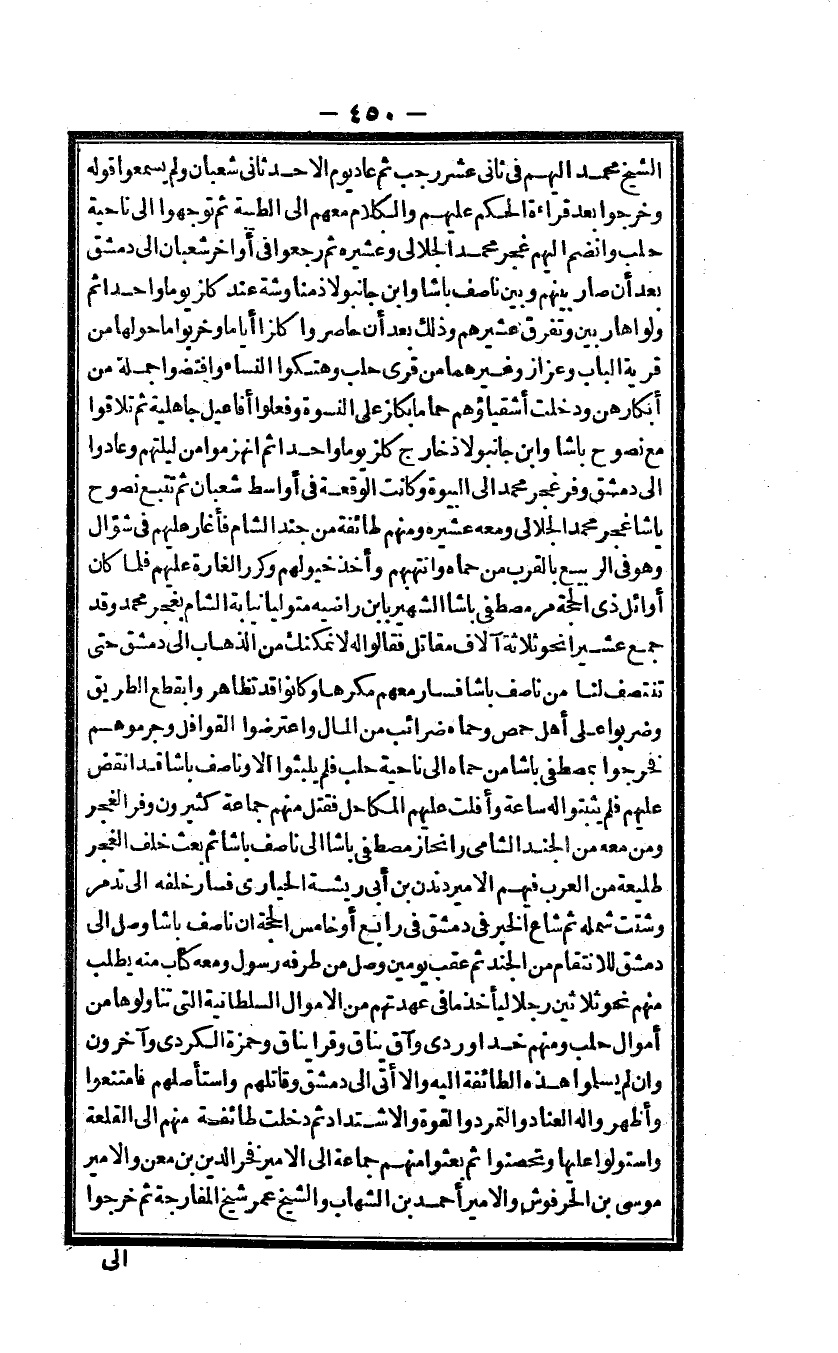 — ٤٥٠ —
الشيخ محمد اليهم فى ثانى عشر رجب ثم عاد يوم الاحد ثانى شعبان ولم يسمعوا قوله
وخرجوا بعد قراءة الحكم عليهم والكلام معهم الى الطيبة ثم توجهوا الى ناحية
حلب وانضم اليهم غجر محمد الجلالى وعشيره ثم رجعوا فى أواخر شعبان الى دمشق
بعد أن صار بينهم وبين ناصف باشا وابن جانبولاذ مناوشة عند كلز يوما واحدا ثم
ولوا هاربين وتفرق عشيرهم وذلك بعد أن حاصروا كلزا أياما وخربوا ما حولها من
قرية الباب وعزاز وغيرهما من قرى حلب وهتكوا النساء وافتضوا جملة من
أبكارهن ودخلت أشقياؤهم حما ما بكلز على النسوة وفعلوا أفاعيل جاهلية ثم تلاقوا
مع نصوح باشا وابن جانبولاذ خارج كلز يوما واحدا ثم انهزموا من ليلتهم وعادوا
الى دمشق وفر غجر محمد الى البيوة وكانت الوقعة فى أواسط شعبان ثم تتبع نصوح
باشا غجر محمد الجلالى ومعه عشيره ومنهم طائفة من جند الشام فأغار عليهم فى شوّال
وهو فى الربيع بالقرب من حماه وانتهبهم وأخذ خيولهم وكرر الغارة عليهم فلما كان
أوائل ذى الحجة مر مصطفى باشا الشهير بابن راضيه متوليا نيابة الشام بغجر محمد وقد
جمع عشيرا نحو ثلاثة آلاف مقاتل فقالوا له لا نمكنك من الذهاب الى دمشق حتى
تنتصف لنا من ناصف باشا فسار معهم مكرها وكانوا قد تظاهروا بقطع الطريق
وضربوا على أهل حمص وحماه ضرائب من المال واعترضوا القوافل وجرموهم
فخرجوا بمصطفى باشا من حماه الى ناحية حلب فلم يلبثوا الا وناصف باشا قد انقض
عليهم فلم يثبتوا له ساعة وأفلت عليهم المكاحل فقتل منهم جماعة كثيرون وفر الغجر
ومن معه من الجند الشامى وانحاز مصطفى باشا الى ناصف باشا ثم بعث خلف الغجر
طليعة من العرب فيهم الامير دندن بن أبى ريشة الحيارى فسار خلفه الى تدمر
وشتت شمله ثم شاع الخبر فى دمشق فى رابع أو خامس الحجة ان ناصف باشا وصل الى
دمشق للانتقام من الجند ثم عقب يومين وصل من طرفه رسول ومعه كتاب منه يطلب
منهم نحو ثلاثين رجلا ليأخذ ما فى عهدتهم من الاموال السلطانية التى تناولوها من
أموال حلب ومنهم خداوردى وآق يناق وقرا يناق وحمزة الكردى وآخرون
وان لم يسلوا هذه الطائفة اليه والا أتى الى دمشق وقاتلهم واستأصلهم فامتنعوا
وأظهروا له العناد والتمرد والقوة والاشتداد ثم دخلت طائفة منهم الى القلعة
واستولوا عليها وتحصنوا ثم بعثوا منهم جماعة الى الامير فخر الدين بن معن والامير
موسى بن الحرفوش والامير أحمد بن الشهاب والشيخ عمر شيخ المفارجة ثم خرجوا
الى